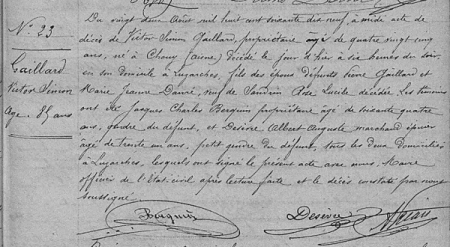 N° 23
Gaillard
Victor Simon
Age : 85 ans
Du vingt deux Août mil huit cent soixante dix neuf, à midi acte de
décès de Victor Simon Gaillard, propriétaire âgé de quatre vingt cinq
ans, né à Chouy (aisne) décédé le jour d'hier à six heures du soir
en son domicile à Luzarches, fils des époux défunts Pierre Gaillard et
Marie Jeanne veuf de Rose Lucile décédée. Les témoins
ont été Jacques Charles Berquin propriétaire âgé de soixante quatre
ans, gendre du défunt, et Desève Albert Auguste marchand épicier
âgé de trente un ans, petit gendre du défunt, tous les deux domiciliés
à Luzarches, lesquels ont signé le présent acte avec nous Maire
officier de l'Etat civil après lecture faite et le décès constaté par nous
soussigné.
Berquin